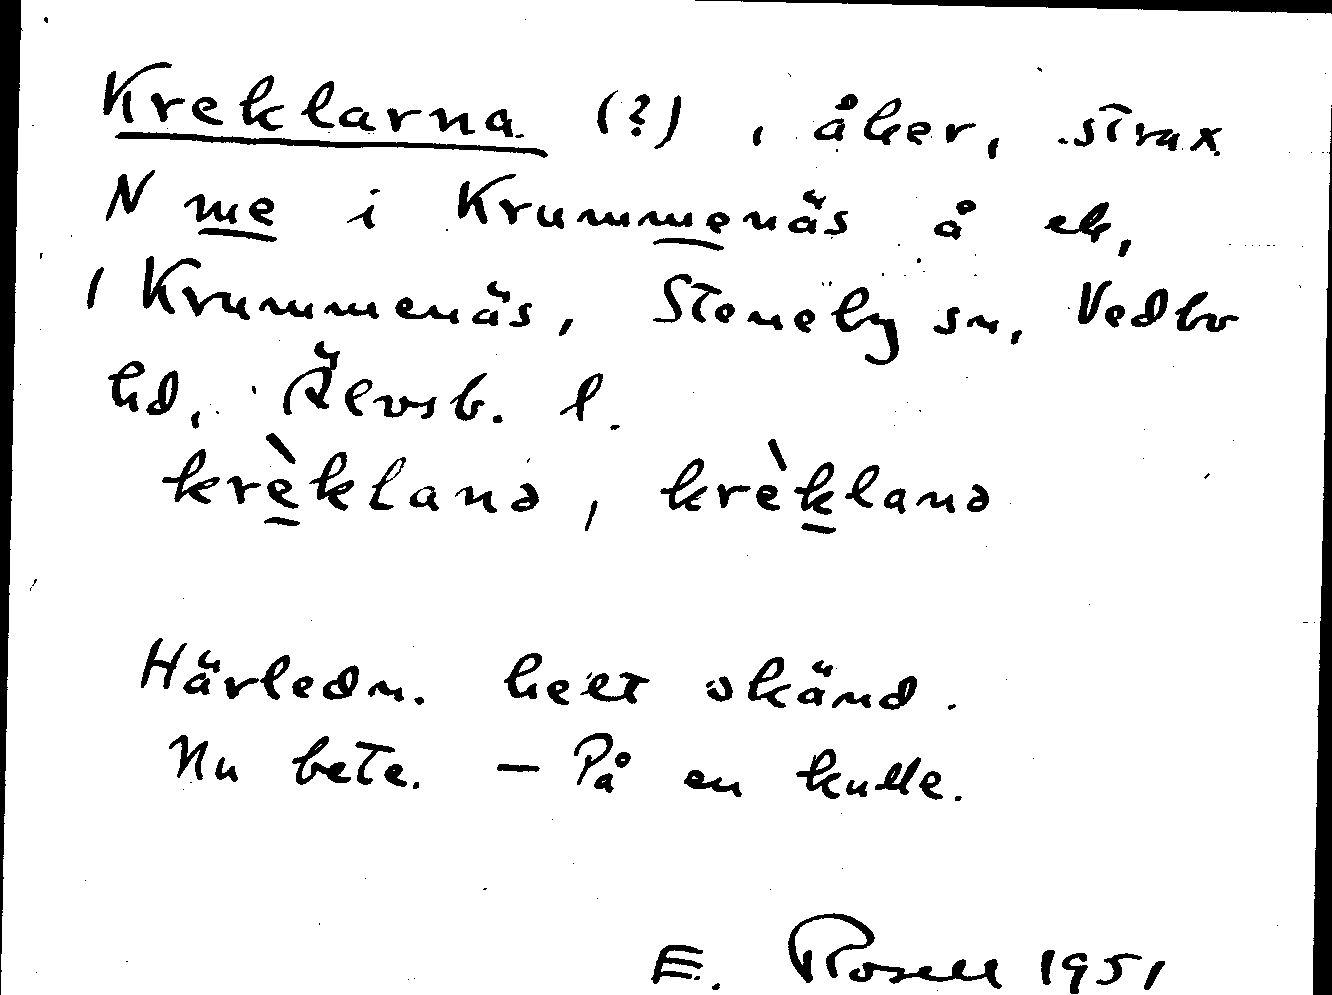 Kreklarna (?), åker, strax
N me i Krummenäs å ek,
1 Krummenäs, Steneby sn, Vedbo
hd, Älvsb. l.
krèkland, krèkland
Härledn. helt okänd.
Nu bete. — På en kulle.
E. Rosell 1951